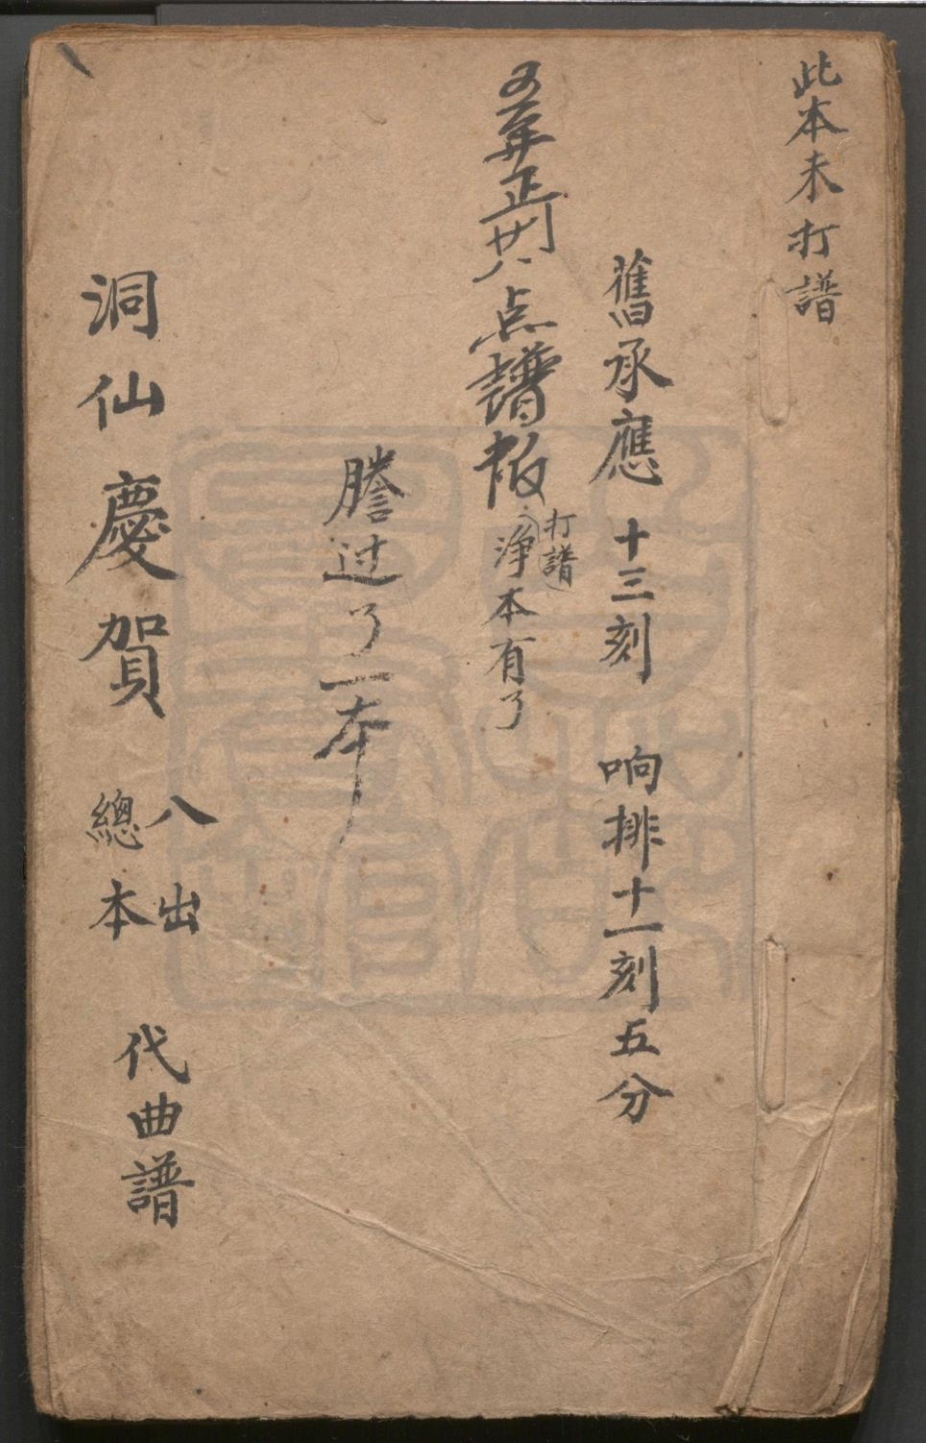 此本未打譜
舊承應 十三刻 响排十一刻五分
年正月廿八点譜板 (打譜) 净本有了
謄过了一本
洞仙慶賀 八出 總本 代曲譜